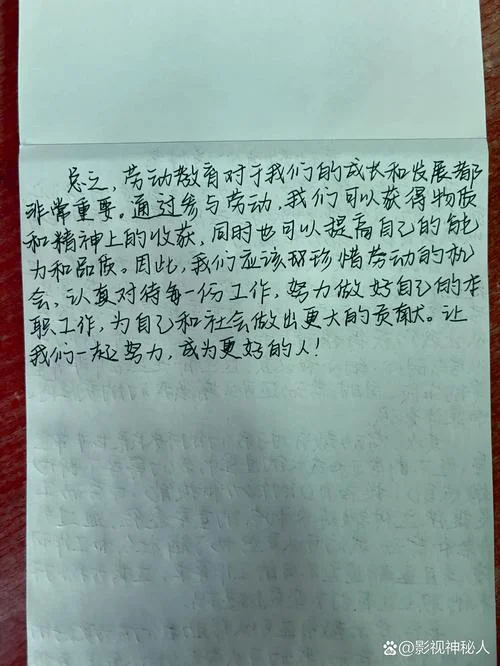 总之，劳动教育对于我们的成长和发展都
非常重要。通过参与劳动，我们可以获得物质
和精神上的收获，同时也可以提高自己的能
力和品质。因此，我们应该珍惜劳动的机
会，认真对待每一份工作，努力做好自己的本
职工作，为自己和社会做出更大的贡献。让
我们一起努力，成为更好的人！
@影视神秘人